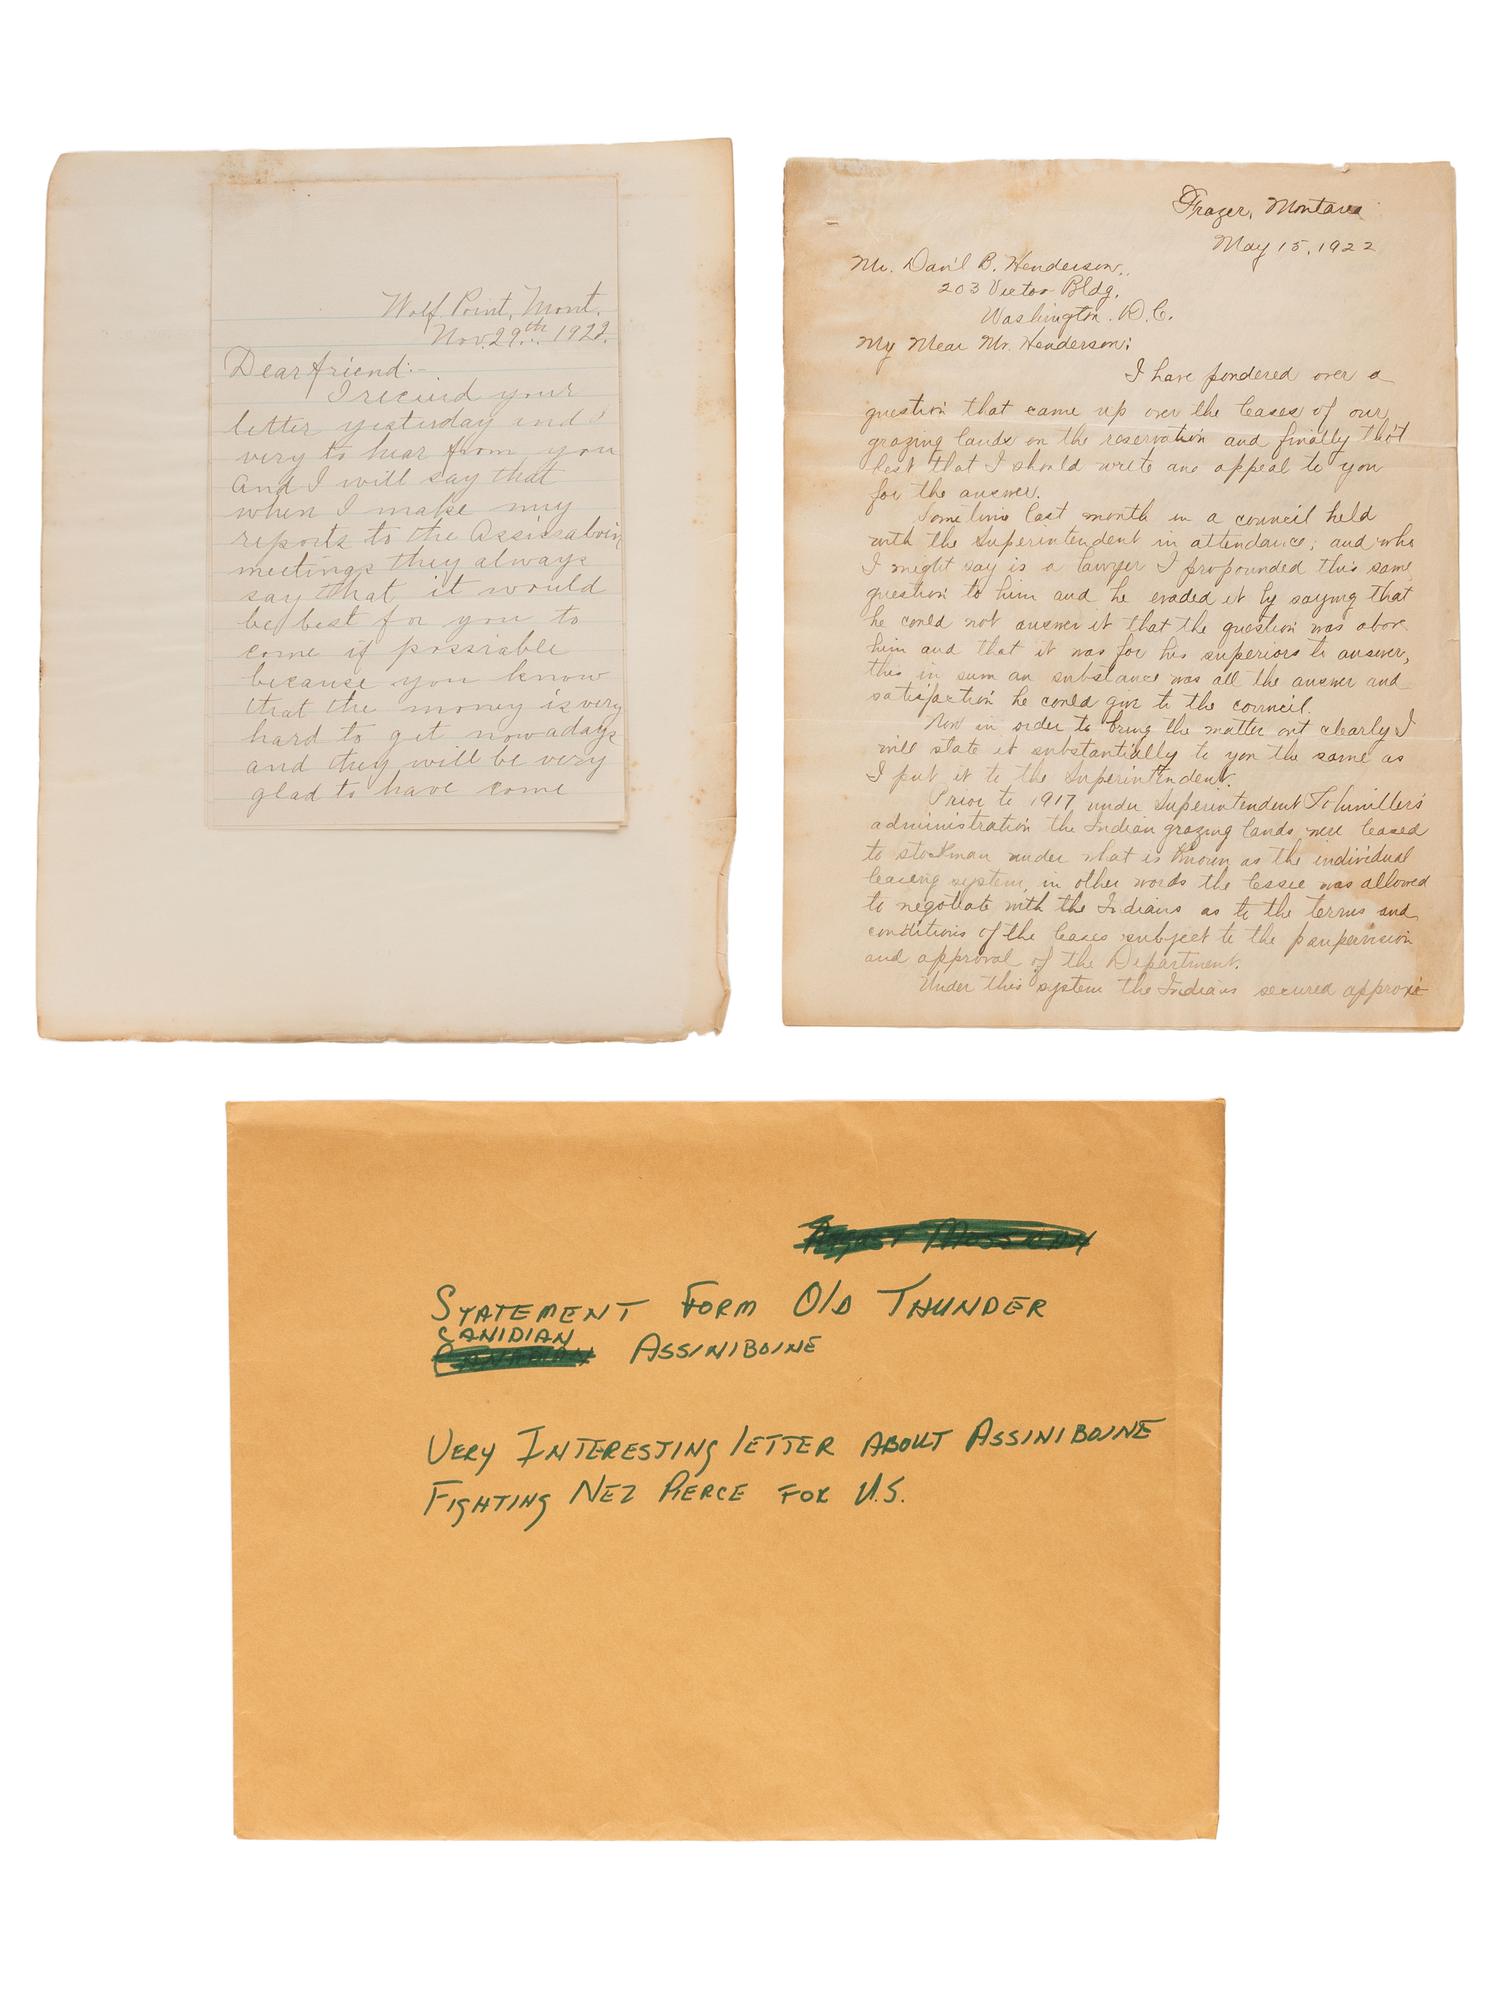 Wolf Point, Mont.
Nov. 29th 1922.
Dear friend:-
I recieid your
letter yesterday and I
very to hear from you
and I will say that
when I make my
reports to the Assinaboin
meetings they always
say that it would
be best for you to
come if possiable
because you know
that the money is very
hard to get nowadays
and they will be very
glad to have come
Frazer, Montana
May 15, 1922
Mr. Dan'l B. Henderson,
203 Victor Bldg,
Washington. D.C.
My Dear Mr. Henderson:
I have pondered over a
question that came up over the leases of our
grazing lands on the reservation and finally tho't
best that I should write an appeal to you
for the answer.
Some time last month in a council held
with the Superintendent in attendance, and who
I might say is a lawyer I propounded this same
question to him and he evaded it by saying that
he could not answer it that the question was above
him and that it was for his superiors to answer,
this in sum an substance was all the answer and
satisfaction he could give to the council.
Now in order to bring the matter out clearly I
will state it substantially to you the same as
I put it to the Superintendent.
Prior to 1917 under Superintendent
administration the Indian grazing lands were leased
to stockman under what is known as the individual
leasing system, in other words the lessee was allowed
to negotiate with the Indians as to the terms and
conditions of the leases subject to the
and approval of the Department.
Under this system the Indians secured approxi-
STATEMENT FORM OLD THUNDER
CANIDIAN
ASSINIBOINE
VERY INTERESTING LETTER ABOUT ASSINIBOINE
FIGHTING NEZ PIERCE FOR U.S.